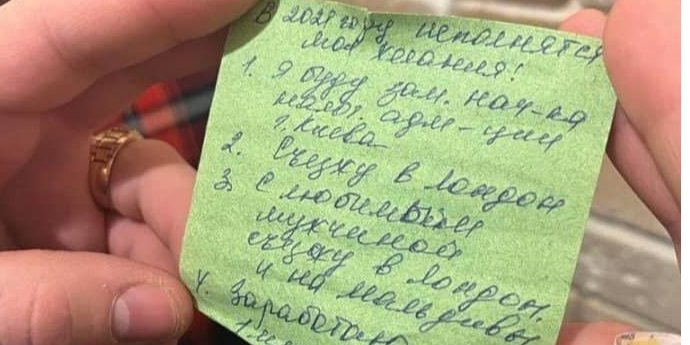 В 2021 году исполнятся
мои желания!
1. Я буду зам. нач-ка
налог. адм-ции
г. Киева
2. Съезжу в Лондон
3. С любимым
мужчиной
съезжу в Лондон.
и на Мальдивы
4. Заработаю